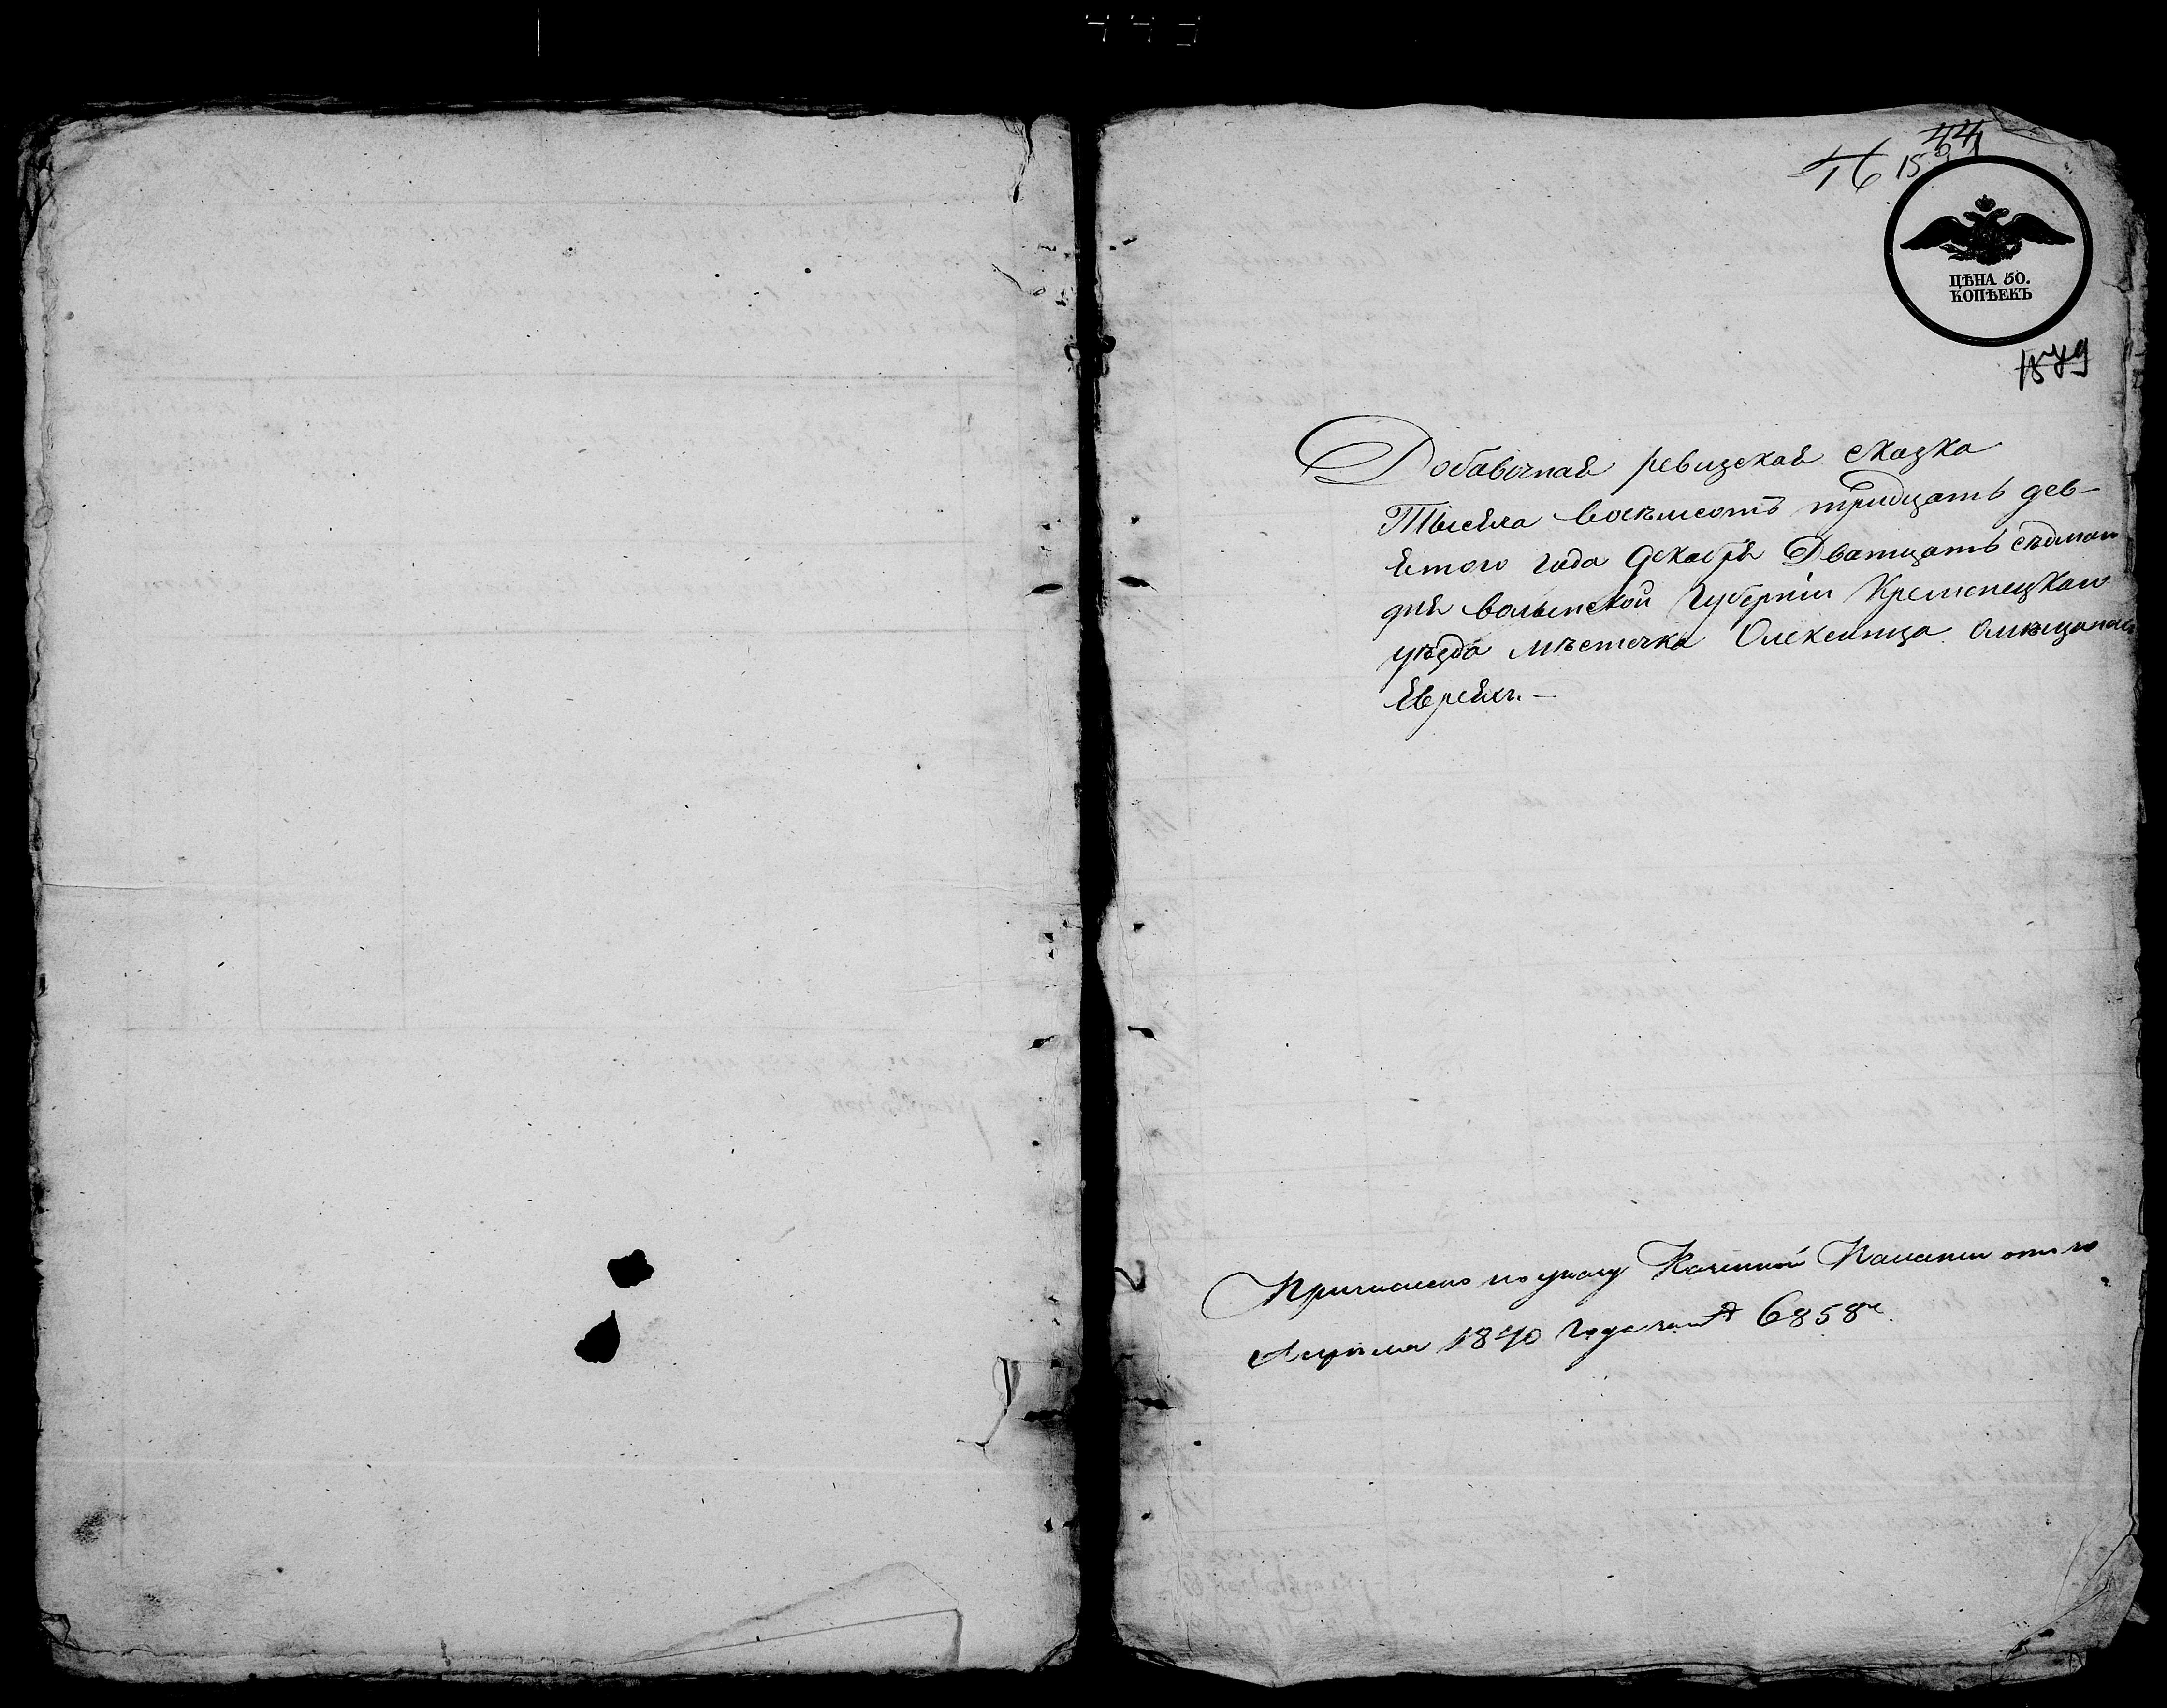 443
44
46 15
ЦѢНА 50.
КОПѢЕКЪ
Добавочная ревизская сказка
Тысяча восѣмсотъ тридцать дев-
ятого года Декабря Дватцать сѣдмаго
дня волынской Губерніи Кременецкаго
уѣзда мѣстечка Олексинца омѣщанахъ
Евреяхъ. —
Причислено по указу Казенной Палаты отъ 10
Апреля 1840 Года за № 6858м